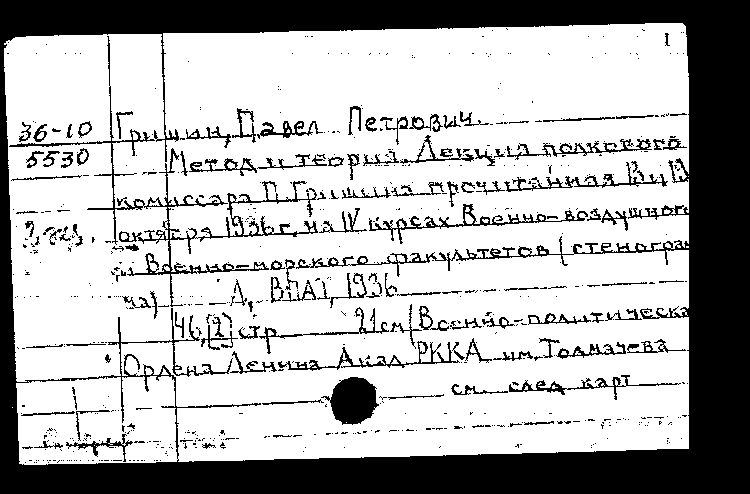 1
36-10
5530
Гришин, Павел Петрович.
Метод и теория. Лекция полкового
комиссара П. Гришина прочитанная 13 и 19
октября 1936 г. на IV курсах Военно-воздушного
и Военно-морского факультетов (стенограм
ма) Л, ВПАТ, 1936
46,[2] стр 21 см (Военно-политическа
Ордена Ленина Акад РККА им. Толмачева
см. след карт